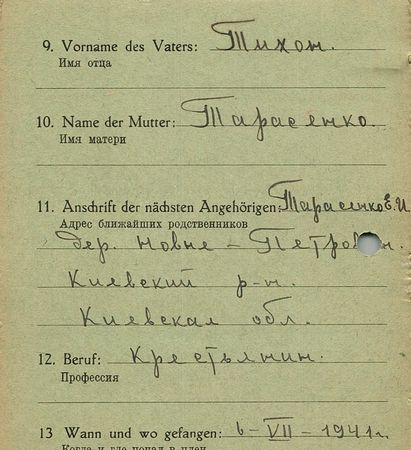 9. Vorname des Vaters: Тихон.
Имя отца
10. Name der Mutter: Тарасенко.
Имя матери
11. Anschrift der nächsten Angehörigen: Тарасенко Е. И
Адрес ближайших родственников
дер. Новые – Петров н.
Киевский р-н.
Киевская обл.
12. Beruf: Крестьянин.
Профессия
13 Wann und wo gefangen: 6 – VII – 1941 г.
Когда и где попал в плен